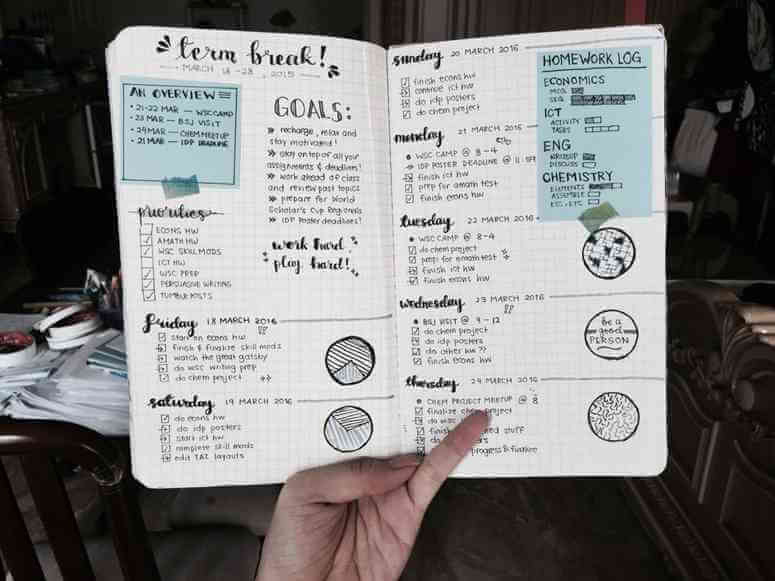 term break!
MARCH 18-28, 2015
AN OVERVIEW
• 21-22 MAR — WSC CAMP
• 23 MAR — BSJ VISIT
• 24 MAR — CHEM MEETUP
• 21 MAR — IDP DEADLINE
GOALS:
» recharge, relax and
stay motivated!
» stay on top of all your
assignments & deadlines!
» work ahead of class
and review past topics
» prepare for World
Scholar's Cup Regionals
» IDP Poster deadlines!
work hard,
play hard!
priorities
ECONS HW
AMATH HW
WSC SKILL MODS
ICT HW
WSC PREP
PERSUASIVE WRITING
TUMBLR POSTS
friday 18 MARCH 2016
start on econs hw
finish & finalize skill mods
watch the great gatsby
do wsc writing prep
do chem project
saturday 19 MARCH 2016
do econs hw
do idp posters
start ict hw
complete skill mods
edit TAZ layouts
sunday 20 MARCH 2016
finish econs hw
continue ict hw
do idp posters
do chem project
monday 21 MARCH 2016
• WSC CAMP @ 8-4
IDP POSTER DEADLINE @ 11:59
finish ict hw
prep for emath test
finish econs hw
tuesday 22 MARCH 2016
• WSC CAMP @ 8-4
do chem project
prep for emath test
finish ict hw
finish econs hw
wednesday 23 MARCH 2016
• BSJ VISIT @ 9-12
do chem project
do idp posters
do other hw??
finish econs hw
thursday 24 MARCH 2016
• CHEM PROJECT MEETUP @ 8
finalize chem project
do wsc
finish stuff
do
progress & finalize
HOMEWORK LOG
ECONOMICS
MCQ
SEQ
ICT
ACTIVITY
TASKS
ENG
WRITEUP
DISCUSS
CHEMISTRY
ELEMENTS
ASSEMBLE
ETC. ETC.
be a
good
PERSON